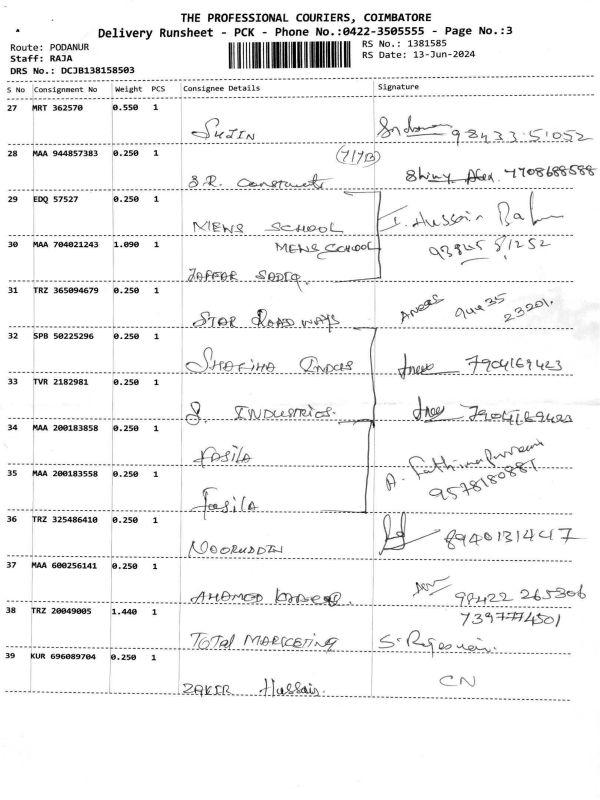 THE PROFESSIONAL COURIERS, COIMBATORE
Delivery Runsheet - PCK - Phone No.:0422-3505555 - Page No.:3
Route: PODANUR
Staff: RAJA
DRS No.: DCJB138158503
RS No.: 1381585
RS Date: 13-Jun-2024
S No Consignment No Weight PCS Consignee Details Signature
27 MRT 362570 0.550 1
SUJIN 98433 51052
28 MAA 944857383 0.250 1
S.R. 7708688588
29 EDQ 57527 0.250 1
MENS SCHOOL I. Hussain
30 MAA 704021243 1.090 1 MENS SCHOOL 93845 51252
JAFFAR SADIQ.
31 TRZ 365094679 0.250 1
STAR ROADWAYS 23201.
32 SPB 50225296 0.250 1
7904169423
33 TVR 2182981 0.250 1
S. INDUSTRIES. 7904169423
34 MAA 200183858 0.250 1
FASILA A. Fathima
35 MAA 200183558 0.250 1 9578180881
Fasila
36 TRZ 325486410 0.250 1
NOORUDDIN 8940131447
37 MAA 600256141 0.250 1
AHAMED 98422 265306
38 TRZ 20049005 1.440 1 7397774501
TOTAL MARKETING
39 KUR 696089704 0.250 1 CN
ZAKIR Hussain.